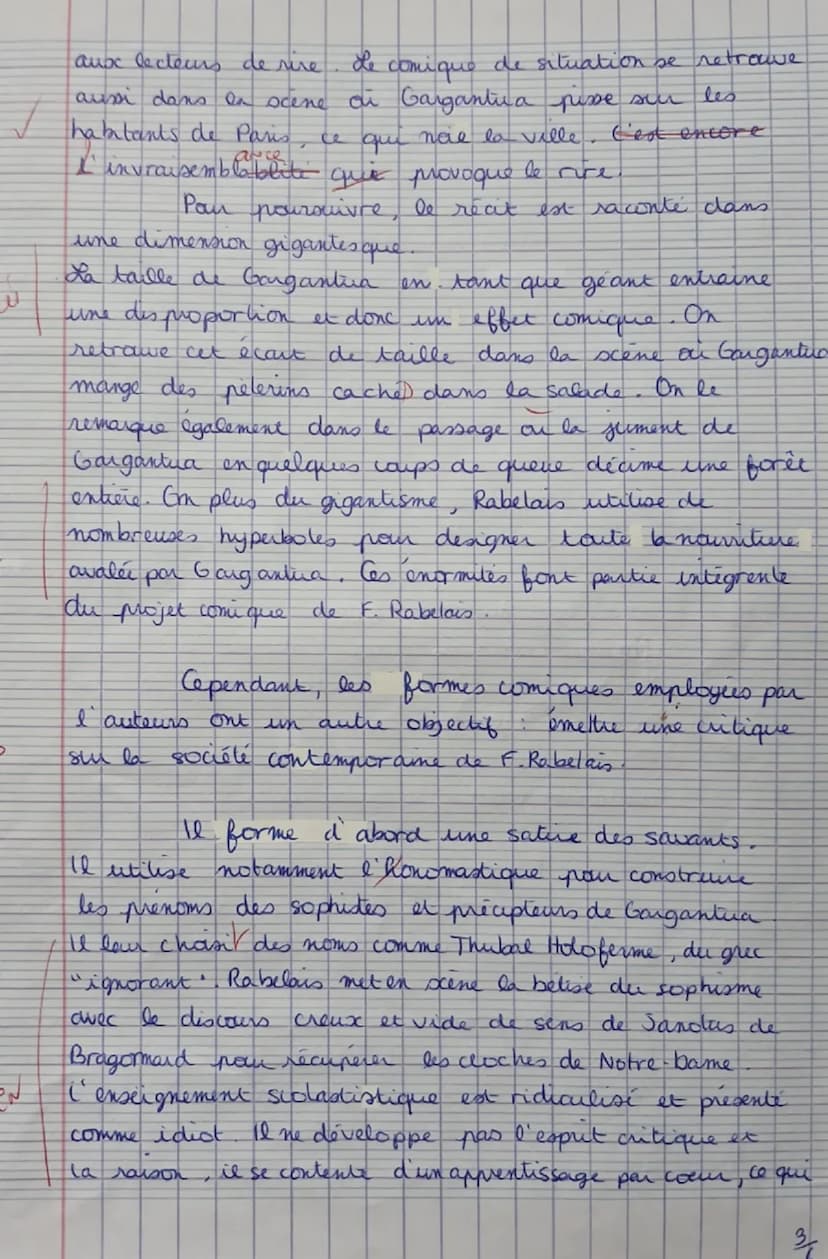 aux lecteurs de rire. Le comique de situation se retrouve
aussi dans la scène où Gargantua pisse sur les
habitants de Paris, ce qui noie la ville. C'est encore
l'invraisemblablité ance qui provoque le rire.
Pour poursuivre, le récit est raconté dans
une dimension gigantesque.
La taille de Gargantua en tant que géant entraine
une disproportion et donc un effet comique. On
retrouve cet écart de taille dans la scène où Gargantua
mange des pèlerins caché dans la salade. On le
remarque également dans le passage où la jument de
Gargantua en quelques coups de queue décime une forêt
entière. En plus du gigantisme, Rabelais utilise de
nombreuses hyperboles pour designer toute la nourriture
avalée par Gargantua. Ces énormités font partie intégrente
du projet comique de F. Rabelais.
Cependant, les formes comiques employées par
l'auteurs ont un autre objectif : émettre une critique
sur la société contemporaine de F. Rabelais.
Il forme d'abord une satire des savants.
Il utilise notamment l'honomastique pour construire
les prénoms des sophistes et précepteurs de Gargantua
Il leur choisit des noms comme Thubal Holoferme, du grec
"ignorant". Rabelais met en scène la bêtise du sophisme
avec le discours creux et vide de sens de Janotus de
Bragomard pour récupérer les cloches de Notre-Dame.
L'enseignement scolastistique est ridiculisé et présenté
comme idiot. Il ne développe pas l'esprit critique et
la raison, il se contente d'un apprentissage par coeur, ce qui
3/